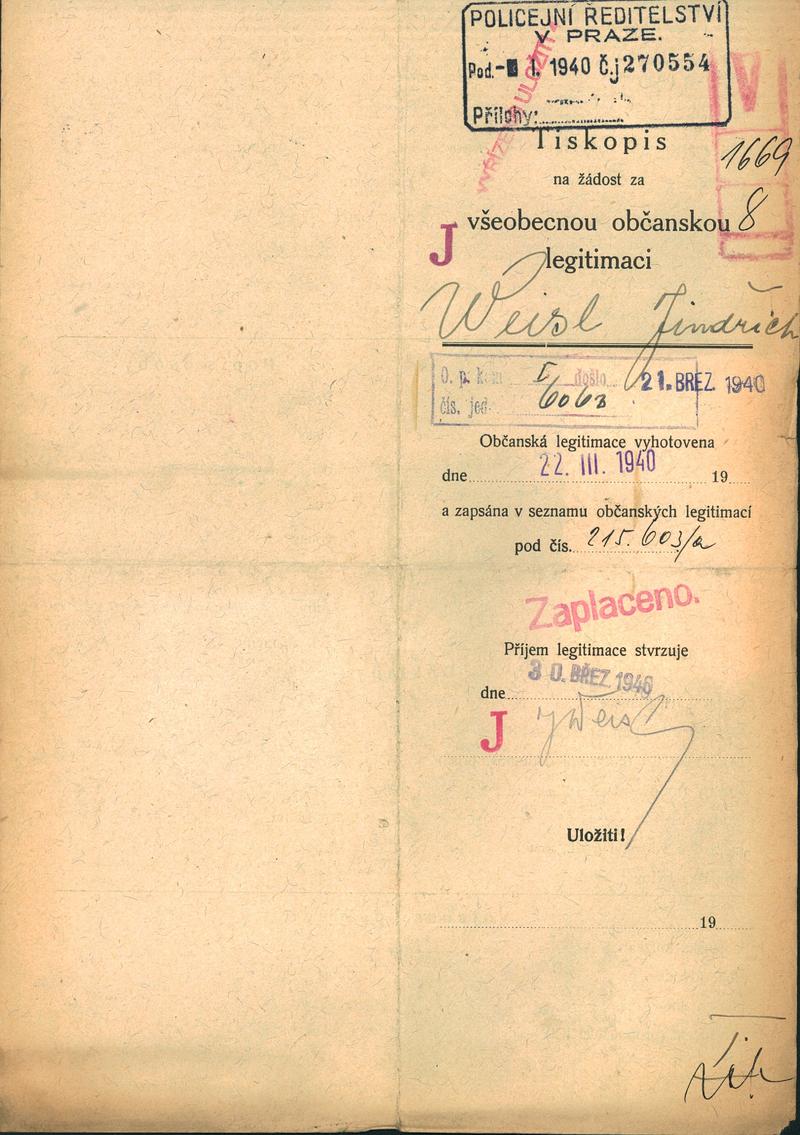 POLICEJNÍ ŘEDITELSTVÍ
V PRAZE.
Pod. 1. 1940 č.j 270554
Přílohy:
Tiskopis
1669
na žádost za
všeobecnou občanskou 8
J
legitimaci
Weisl Jindřich
O. p. kom I došlo 21. BŘEZ. 1940
čís. jed. 6063
Občanská legitimace vyhotovena
dne 22. III. 1940 19
a zapsána v seznamu občanských legitimací
pod čís. 215.603/a
Zaplaceno.
Příjem legitimace stvrzuje
dne 30. BŘEZ 1940
J JWeisl
Uložiti!
19